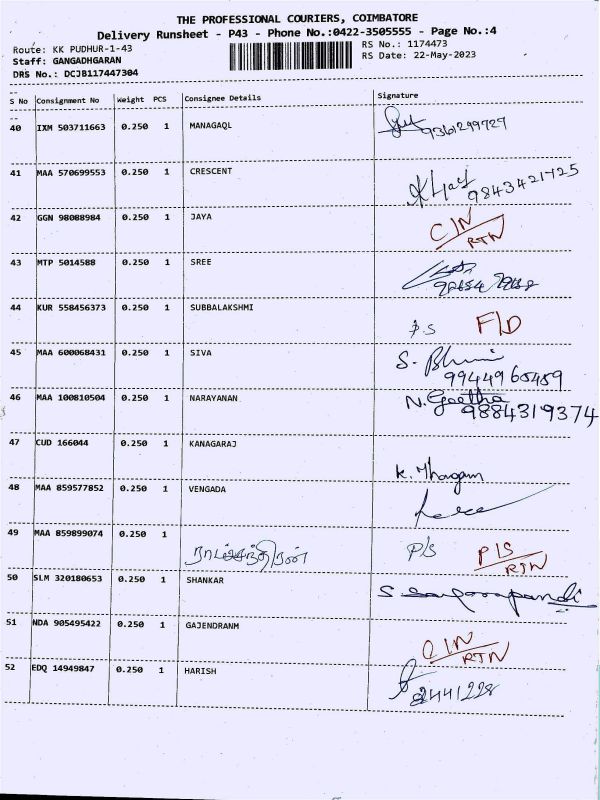 THE PROFESSIONAL COURIERS, COIMBATORE
Delivery Runsheet - P43 - Phone No.:0422-3505555 - Page No.:4
Route: KK PUDHUR-1-43 RS No.: 1174473
Staff: GANGADHGARAN RS Date: 22-May-2023
DRS No.: DCJB117447304
S No Consignment No Weight PCS Consignee Details Signature
40 IXM 503711663 0.250 1 MANAGAQL 9361299729
41 MAA 570699553 0.250 1 CRESCENT 9843421725
42 GGN 98088984 0.250 1 JAYA C/N
RTN
43 MTP 5014588 0.250 1 SREE
44 KUR 558456373 0.250 1 SUBBALAKSHMI P.S F/D
45 MAA 600068431 0.250 1 SIVA S.
9944965459
46 MAA 100810504 0.250 1 NARAYANAN N. Geetha
9884319374
47 CUD 166044 0.250 1 KANAGARAJ K.
48 MAA 859577852 0.250 1 VENGADA
49 MAA 859899074 0.250 1 P/S P/S
RTN
50 SLM 320180653 0.250 1 SHANKAR S
51 NDA 905495422 0.250 1 GAJENDRANM
RTN
52 EDQ 14949847 0.250 1 HARISH 2441228